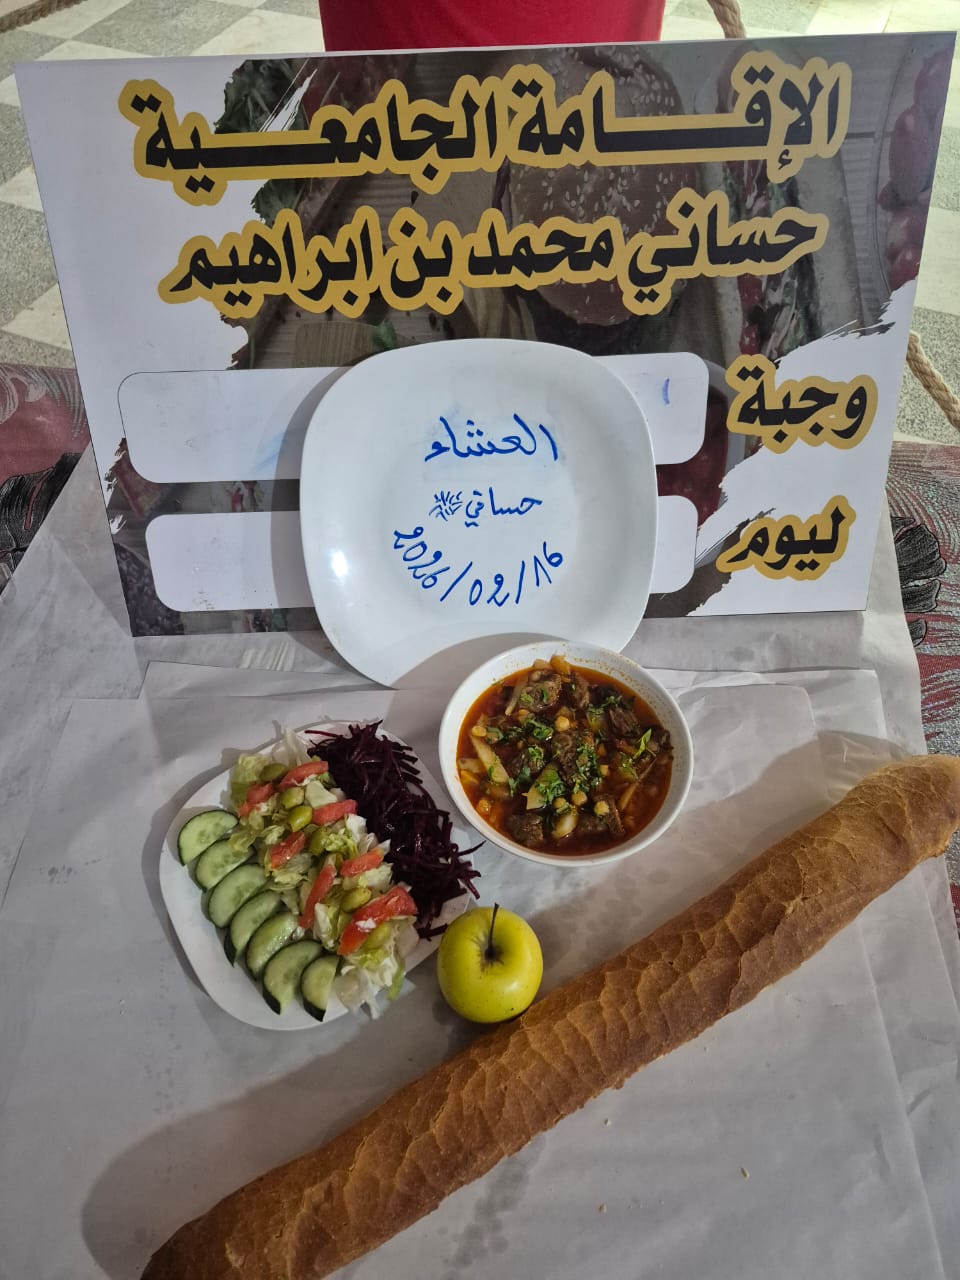 الإقامة الجامعية
حساني محمد بن ابراهيم
وجبة
العشاء
حساني
ليوم
2026/02/16